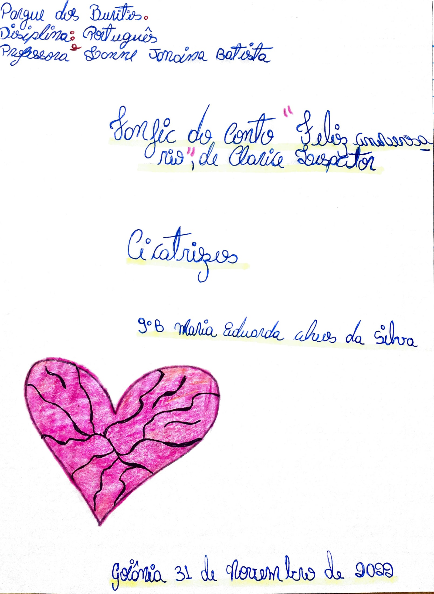 Parque dos Buritis.
Disciplina: Português
Professora Janaina Batista
Fanfic do conto "Feliz aniversa-
rio", de Clarice Lispector
Cicatrizes
9ºB Maria Eduarda alves da Silva
Goiânia 31 de Novembro de 2022